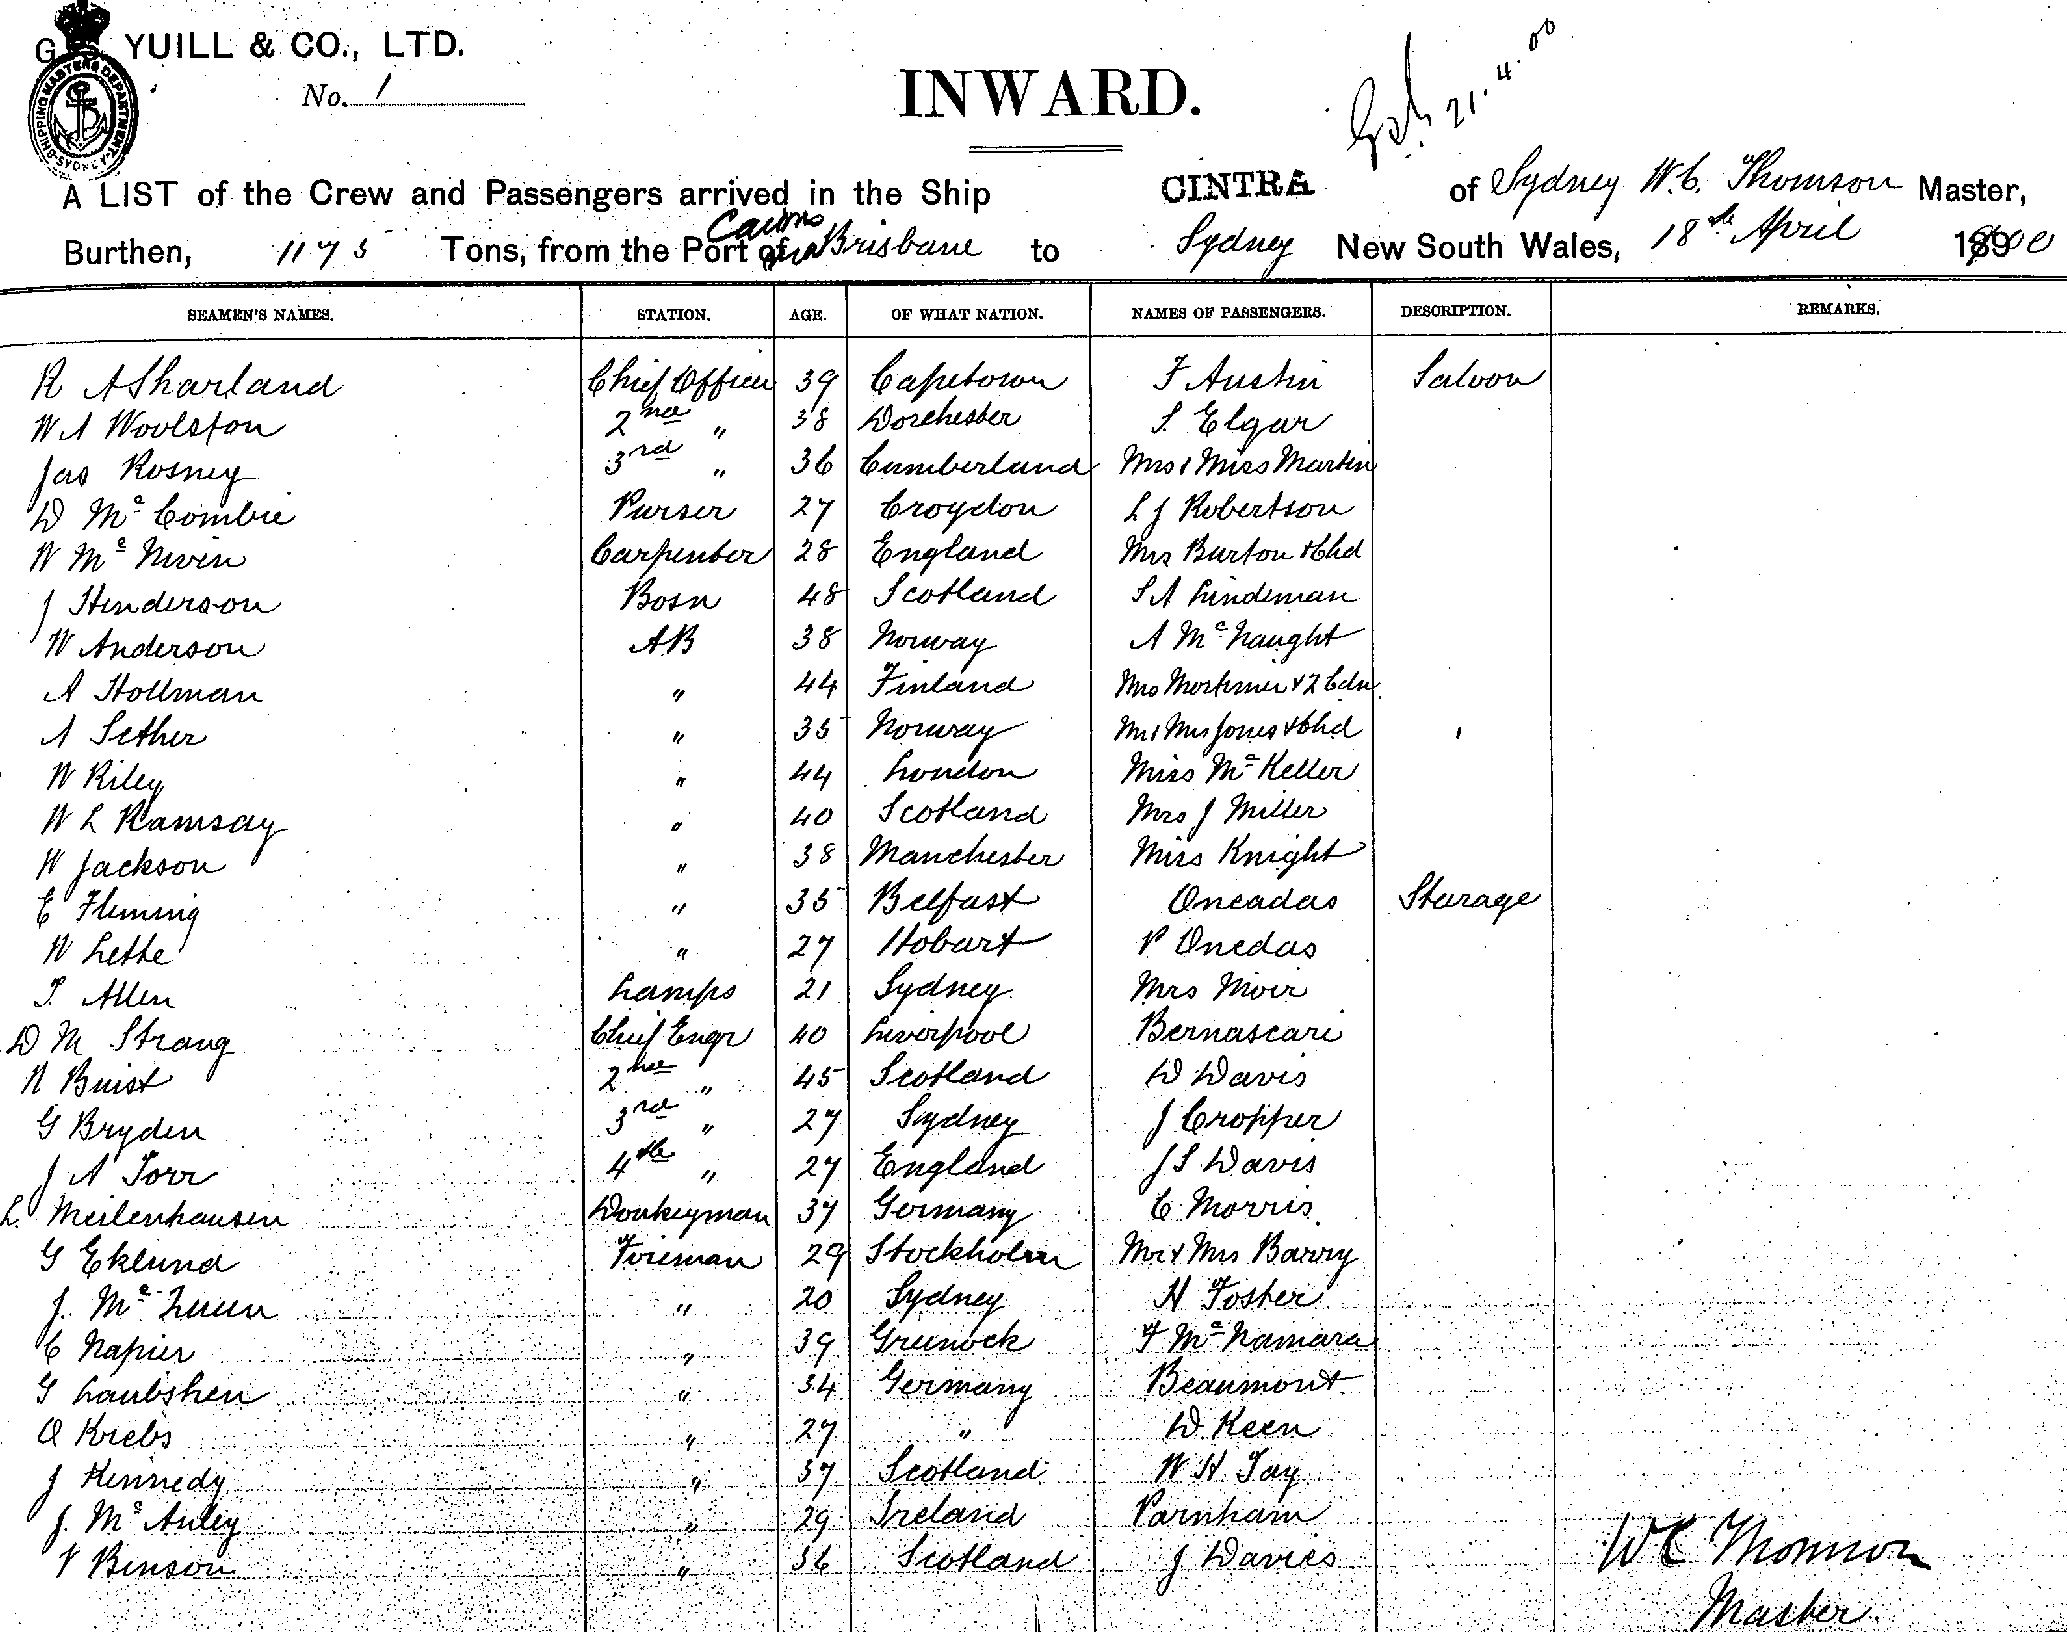 G. YUILL & CO., LTD.
No. 1
SHIPPING MASTERS DEPARTMENT SYDNEY
INWARD.
21.4.00
A LIST of the Crew and Passengers arrived in the Ship CINTRA of Sydney W.C. Thomson Master,
Cairns
Burthen, 1175 Tons, from the Port of Brisbane to Sydney New South Wales, 18th April 1900
SEAMEN'S NAMES. STATION. AGE. OF WHAT NATION. NAMES OF PASSENGERS. DESCRIPTION. REMARKS.
R A Sharland Chief Officer 39 Capetown F Austin Saloon
W A Woolston 2nd " 38 Dorchester S. Elgar
Jas Rosney 3rd " 36 Cumberland Mrs & Miss Martin
D Mc Combie Purser 27 Croydon L J Robertson
W Mc Niven Carpenter 28 England Mrs Burton & Chd
J Henderson Bosn 48 Scotland S A Lindeman
W Anderson AB 38 Norway A Mc Naught
A Hollman " 44 Finland Mrs Mortimer & 2 Cdn
A Sether " 35 Norway Mr & Mrs Jones & Chd
W Riley " 44 London Miss Mc Keller
W L Ramsay " 40 Scotland Mrs J Miller
W Jackson " 38 Manchester Miss Knight
E Fleming " 35 Belfast Oneadas Sturage
W Lethe " 27 Hobart P Onedas
T. Allen Lamps 21 Sydney Mrs Moir
D M Strang Chief Engr 40 Liverpool Bernascari
N Buist 2nd " 45 Scotland D Davis
G Bryden 3rd " 27 Sydney J Cropper
J A Torr 4th " 27 England J S Davis
L. Meilenhausen Donkeyman 37 Germany C Morris
G Eklund Fireman 29 Stockholm Mr & Mrs Barry
J. Mc Queen " 20 Sydney H Foster
C Napier " 39 Greenock F Mc Namara
G Laubshen " 34 Germany Beaumont
O Krebs " 27 " D Keen
J Kennedy " 37 Scotland W H Tay
J. Mc Auley " 29 Ireland Parnham
P Binson " 36 Scotland J Davies
W C Thomson
Master